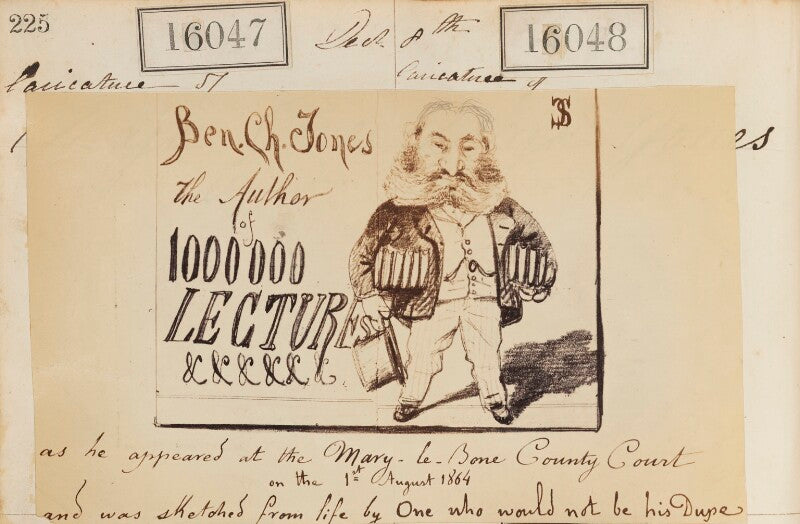 225
16047
Dech 8th
16048
Caricature of
Caricature of
es
Ben. Ch. Jones
The Author
of
1000000
LECTURES
&&&&&&.
as he appeared at the Mary-le-Bone County Court
on the 1st August 1864
and was sketched from life by One who would not be his Dupe